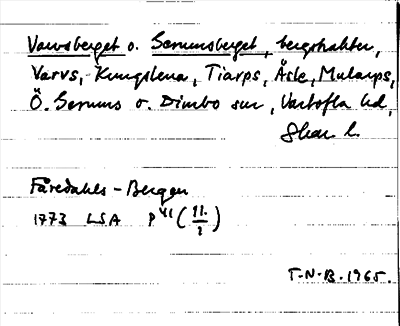 Varvsberget o. Gerumsberget, bergstrakter,
Varvs, Kungslena, Tiarps, Åsle, Mularps,
Ö. Gerums o. Dimbo snr, Vartofta hd,
Skar. l.
Fåredahls-Bergen
1773 LSA P 41 (11. / 2)
T-N-B. 1965.